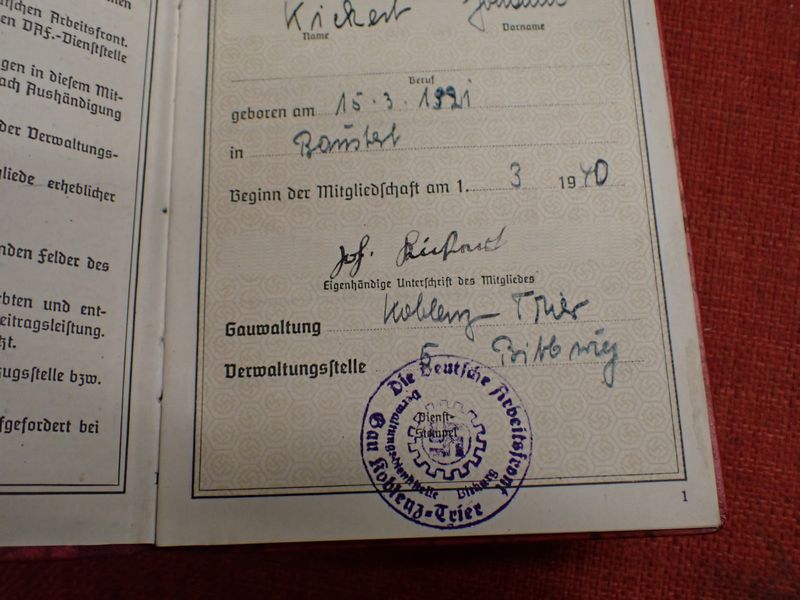 men
tschen Arbeitsfront.
en DAF.-Dienststelle
gen in diesem Mit-
ach Aushändigung
der Verwaltungs-
gliede erheblicher
nden Felder des
rbten und ent-
eitragsleistung.
zt.
zugsstelle bzw.
fgefordert bei
Kickert Johann
Name Vorname
Beruf
geboren am 15.3.1921
in Baustert
Beginn der Mitgliedschaft am 1. 3 1940
Joh. Kickert
Eigenhändige Unterschrift des Mitgliedes
Gauwaltung Koblenz-Trier
Verwaltungsstelle 5 Bitburg
Dienst-
Stempel
Die Deutsche Arbeitsfront
Verwaltungsdienststelle Bitburg
Gau Koblenz-Trier
1